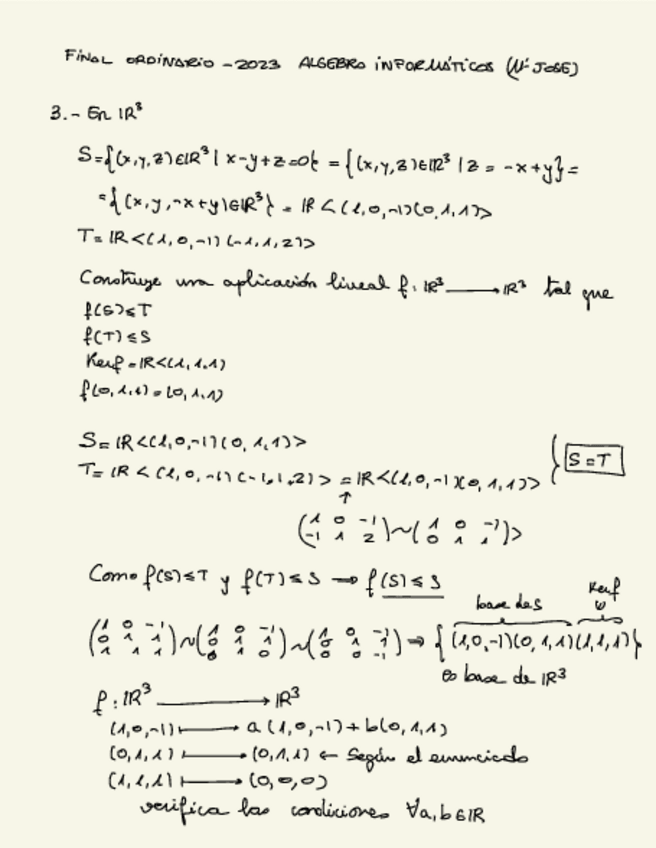 FINAL ORDINARIO - 2023 ALGEBRA INFORMÁTICOS (Mª JOSE)
3.- En IR³
S={(x,y,z)∈IR³ | x-y+z=0} = {(x,y,z)∈IR³ | z = -x+y} =
={(x,y,-x+y)∈IR³} = IR<(1,0,-1)(0,1,1)>
T= IR<(1,0,-1)(-1,1,2)>
Construye una aplicación lineal f: IR³ → IR³ tal que
f(S)≤T
f(T)≤S
Kerf = IR<(1,1,1)
f(0,1,1)=(0,1,1)
S= IR<(1,0,-1)(0,1,1)>
T= IR<(1,0,-1)(-1,1,2)> = IR<(1,0,-1)(0,1,1)> } S=T
↑
(1 0 -1 / -1 1 2) ~ (1 0 -1 / 0 1 1)>
Como f(S)≤T y f(T)≤S → f(S)≤S
base de S Kerf
(1 0 -1 / 0 1 1 / 1 1 1) ~ (1 0 -1 / 0 1 1 / 0 1 2) ~ (1 0 -1 / 0 1 1 / 0 0 1) → {(1,0,-1)(0,1,1)(1,1,1)}
es base de IR³
f: IR³ → IR³
(1,0,-1) ↦ a(1,0,-1)+b(0,1,1)
(0,1,1) ↦ (0,1,1) ← Según el enunciado
(1,1,1) ↦ (0,0,0)
verifica las condiciones ∀a,b∈IR